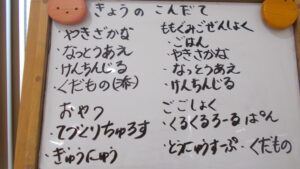 きょうの こんだて
・やきざかな
・なっとうあえ
・けんちんじる
・くだもの(柿)
おやつ
・てづくりちゅろす
・ぎゅうにゅう
ももぐみごぜんしょく
・ごはん
・やきさかな
・なっとうあえ
・けんちんじる
ごごしょく
・くるくるろーる ぱん
・とうにゅうすーぷ・くだもの